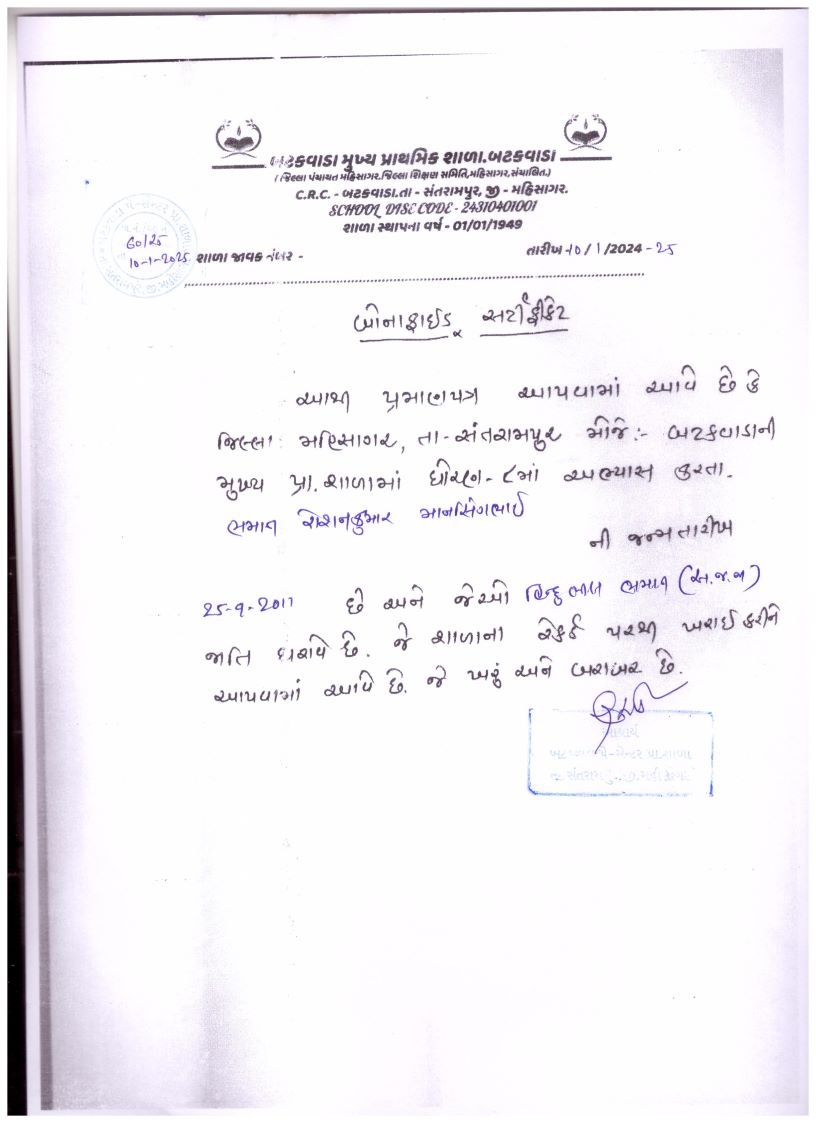 બટકવાડા મુખ્ય પ્રાથમિક શાળા.બટકવાડા
( જિલ્લા પંચાયત મહિસાગર.જિલ્લા શિક્ષણ સમિતિ,મહિસાગર,સંચાલિત.)
C.R.C. - બટકવાડા.તા - સંતરામપુર, જી - મહિસાગર.
SCHOOL DISE CODE - 24310401001
શાળા સ્થાપના વર્ષ - 01/01/1949
60/25
10-1-2025 શાળા જાવક નંબર -
તારીખ 10/1/2024-25
બોનાફાઈડ સર્ટીફીકેટ
આથી પ્રમાણપત્ર આપવામાં આવે છે કે
જિલ્લા: મહિસાગર, તા-સંતરામપુર મોજે:- બટકવાડાની
મુખ્ય પ્રા.શાળામાં ધોરણ-૮માં અભ્યાસ કરતા.
ભમાત રોશનકુમાર માનસિંગભાઈ
ની જન્મતારીખ
25-9-2011 છે અને જેઓ હિન્દુ ભમાત (અ.જ.જા)
જાતિ ધરાવે છે. જે શાળાના રેકર્ડ પરથી ખરાઈ કરીને
આપવામાં આવે છે. જે ખરું અને બરાબર છે.
આચાર્ય